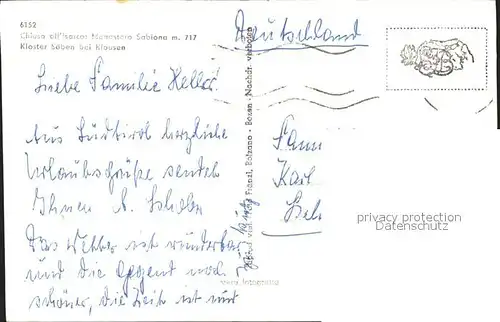 6152
Chiusa all'Isarco Monastero Sabiona m. 717
Kloster Säben bei Klausen
Deutschland
Liebe Familie
Aus Südtirol herzliche
Urlaubsgrüße sendet
Ihnen
Das Wetter ist wunderbar
und die Gegend noch
schöner, die Zeit ist nur
Fam
Karl
privacy protection
Datenschutz
Bolzano - Bozen - Nachdr. verboten
vera fotografia